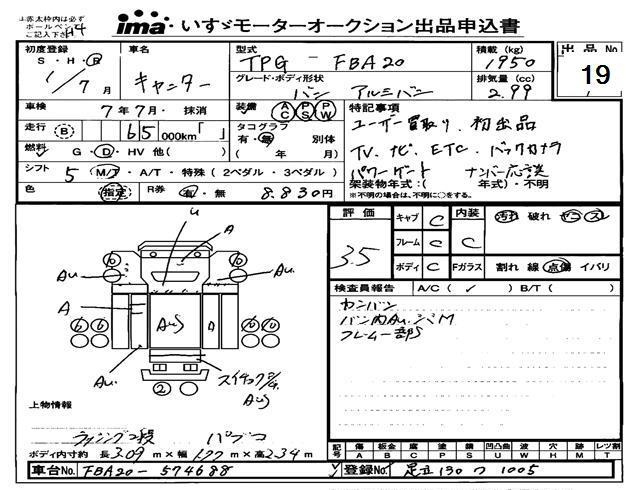 赤太枠内は必ず
ボールペンで
ご記入下さい
ima いすゞモーターオークション出品申込書
初度登録
S・H・R
1/7月
車名
キャンター
型式
TPG - FBA20
積載 (kg)
1950
出品 No
19
グレード・ボディ形状
バン アルミバン
排気量 (cc)
2.99
車検 7年7月・抹消
装備 AC PS PW
特記事項
ユーザー買取り、初出品
TV、ナビ、ETC、バックカメラ
パワーゲート ナンバー応談
走行 (B) 65,000km「 」
タコグラフ
有・無 別体
( 年 月)
燃料 G・D・HV 他( )
シフト 5 M/T・A/T・特殊 (2ペダル・3ペダル)
架装物年式:( 年式)・不明
※不明の場合は、不明に○をする。
色 指定 R券 有・無 8,830円
評価
3.5
キャブ C 内装 汚れ 破れ ヤニ スレ
フレーム C C
ボディ C Fガラス 割れ 線 点傷 イバリ
検査員報告 A/C ( ✓ ) B/T ( )
カンバン
バン内AU.シバM
フレーム一部S
u
A
Au
Au
A
A
AuS
Au
AuS
6 6
2
上物情報
ラッシング2段 パブコ
ボディ内寸約 長3.09m×幅1.77m×高2.34m
記号 傷 板金 腐 塗 錆 凹凸曲 波 穴 跡 レンズ割
A B C P S U W H M T
車台No. FBA20-574688
登録No. 足立 130 つ 1005